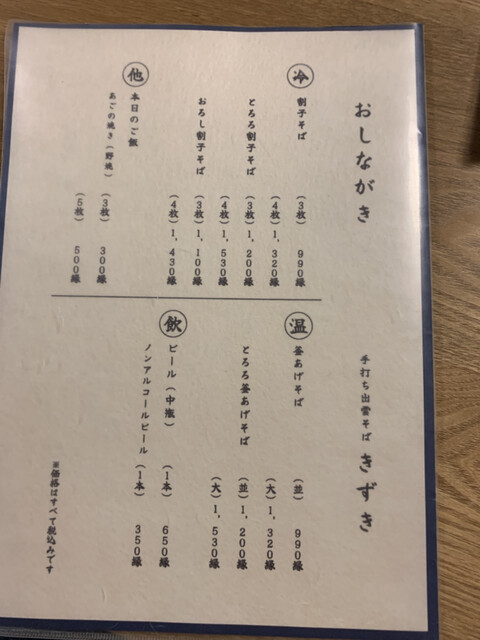 おしながき
手打ち出雲そば きずき
冷
割子そば (3枚) 990縁
(4枚) 1,320縁
とろろ割子そば (3枚) 1,200縁
(4枚) 1,530縁
おろし割子そば (3枚) 1,100縁
(4枚) 1,430縁
他
本日のご飯
あごの焼き(野焼) (3枚) 300縁
(5枚) 500縁
温
釜あげそば (並) 990縁
(大) 1,320縁
とろろ釜あげそば (並) 1,200縁
(大) 1,530縁
飲
ビール(中瓶) (1本) 650縁
ノンアルコールビール (1本) 350縁
※価格はすべて税込みです